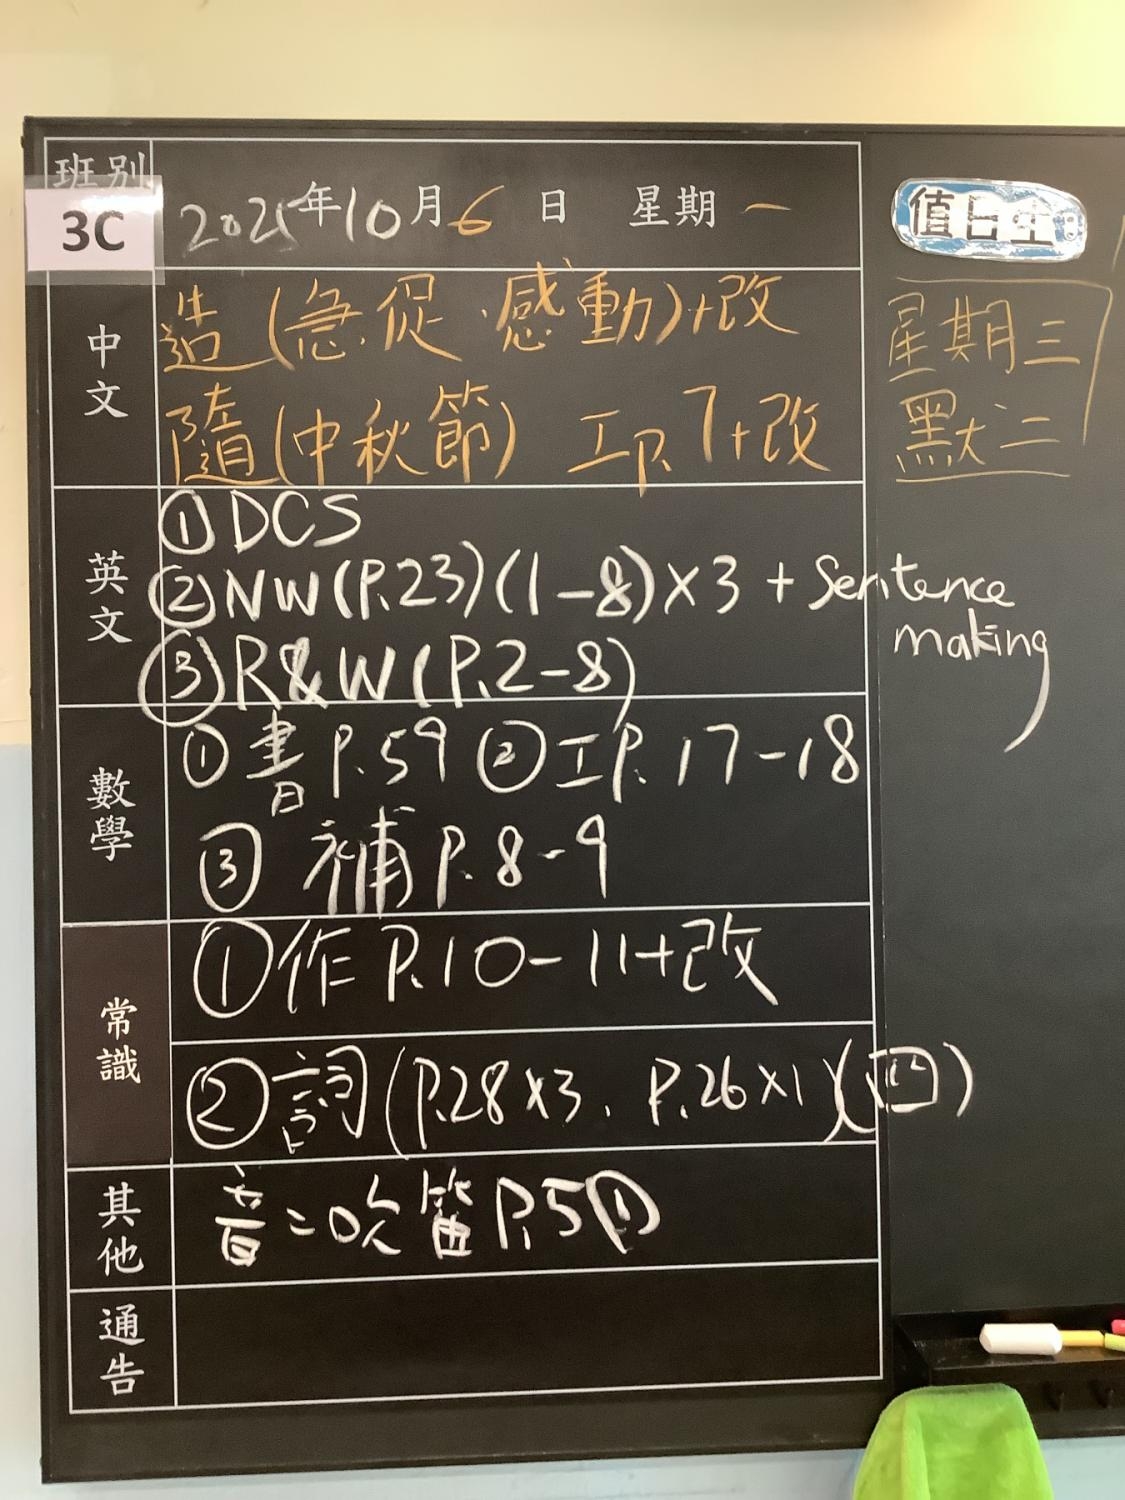 班別
3C
2025年10月6日 星期一
值日生
中文
造(急促、感動)+改
隨(中秋節) 工P.7+改
星期三
默二
英文
①DCS
②NW(P.23)(1-8)×3 + Sentence making
③R&W(P.2-8)
數學
①書P.59 ②工P.17-18
③ 補P.8-9
常識
①作P.10-11+改
②詞(P.28×3、P.26×1)(四)
其他
音:吹笛P.5①
通告